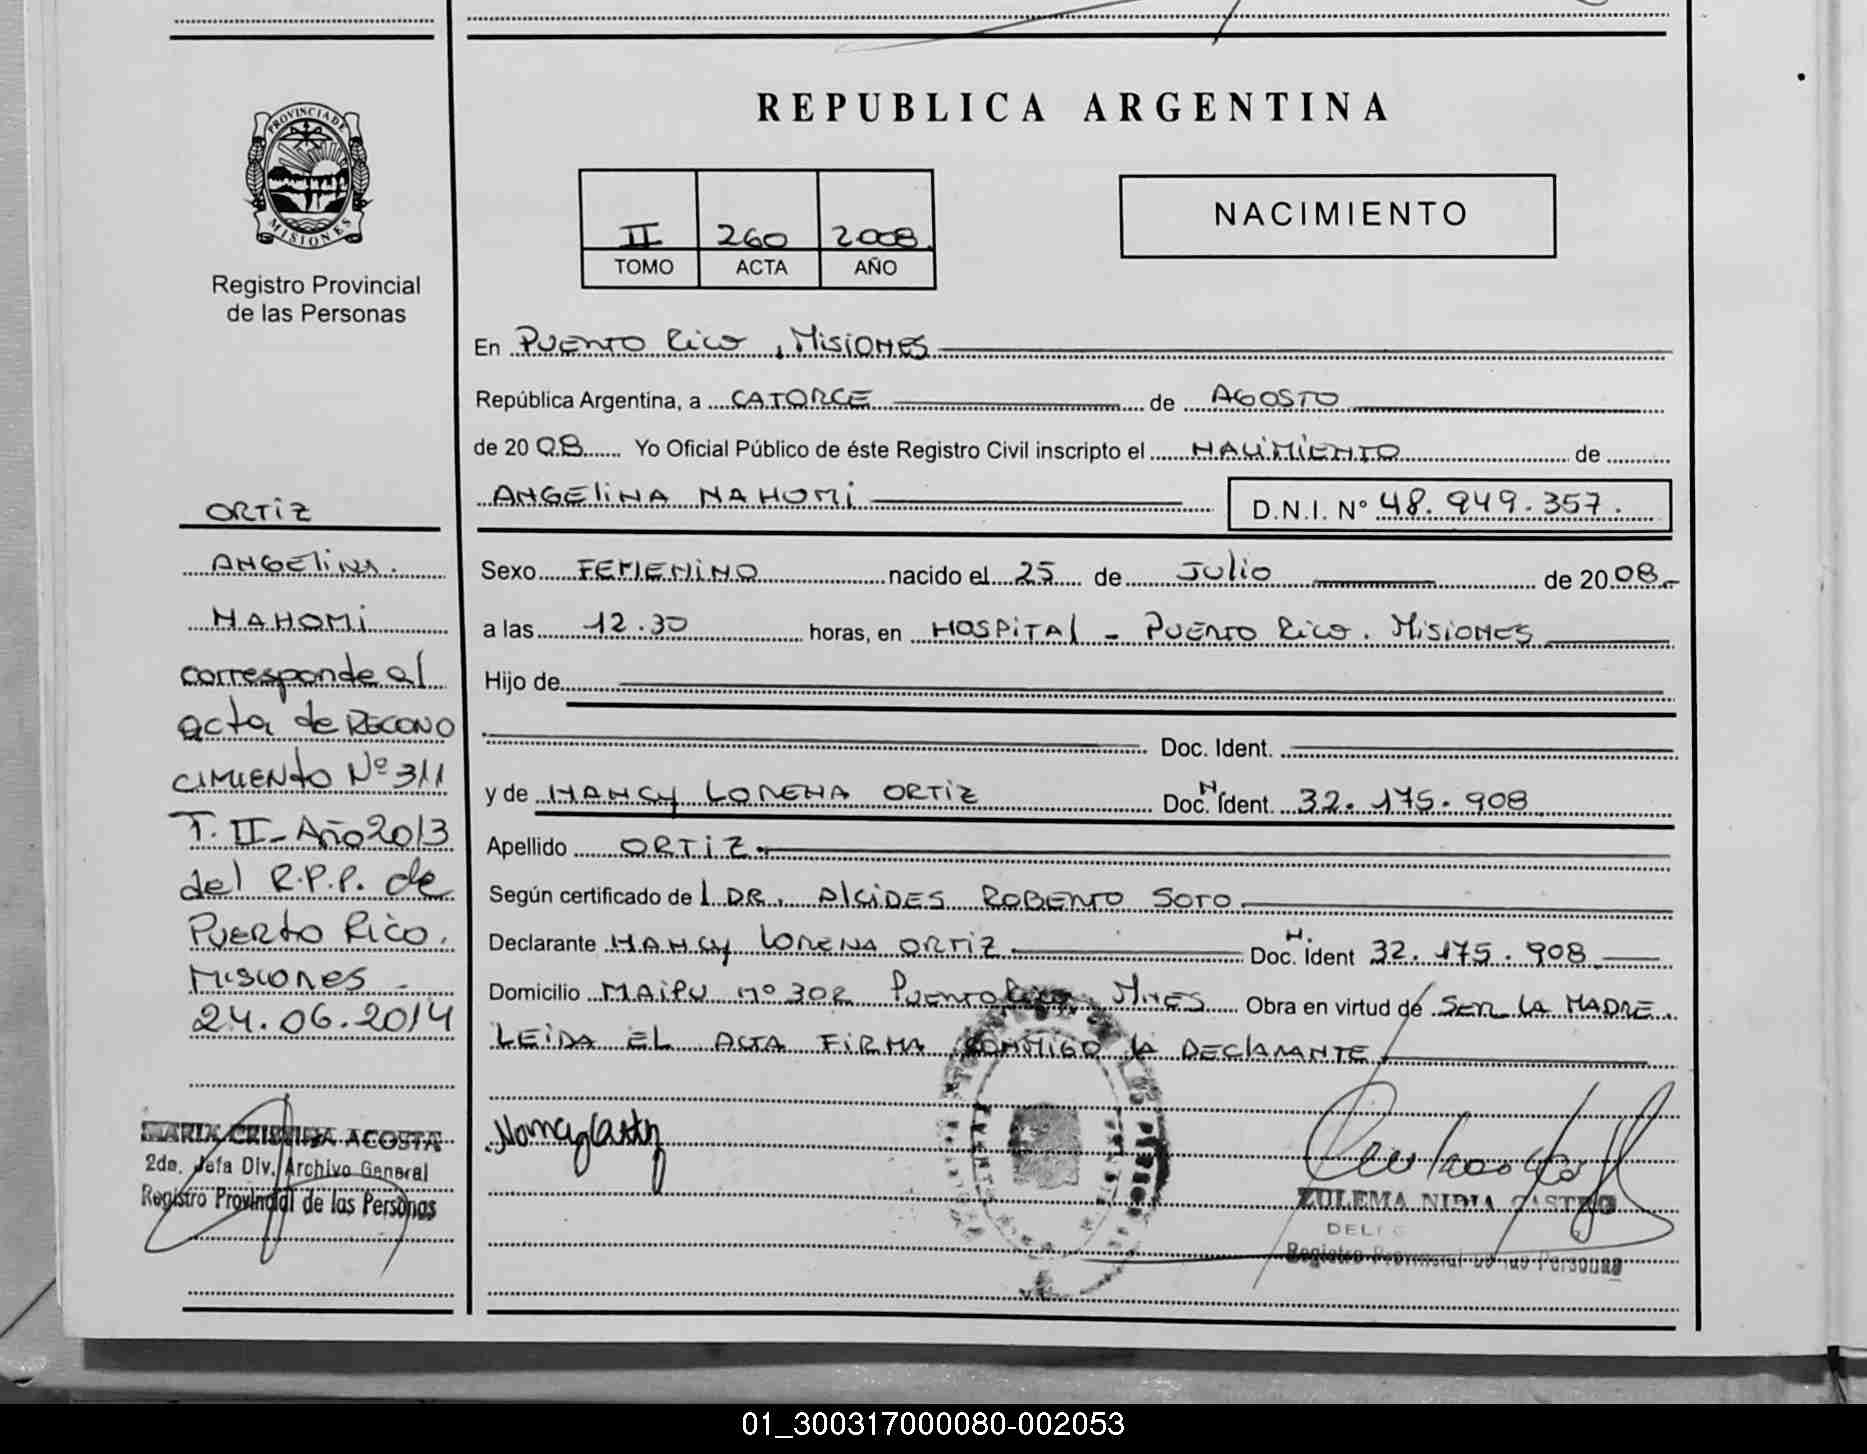 PROVINCIA DE
MISIONES
Registro Provincial
de las Personas
ORTIZ
ANGELINA.
NAHOMI
corresponde al
acta de RECONO
CIMIENTO Nº 311
T. II - Año 2013
del R.P.P. de
Puerto Rico.
Misiones -
24.06.2014
MARIA CRISTINA ACOSTA
2da. Jefa Div. Archivo General
Registro Provincial de las Personas
REPUBLICA ARGENTINA
II 260 2008
TOMO ACTA AÑO
NACIMIENTO
En PUERTO RICO, MISIONES
República Argentina, a CATORCE de AGOSTO
de 20 08 Yo Oficial Público de éste Registro Civil inscripto el NACIMIENTO de
ANGELINA NAHOMI D.N.I. Nº 48.949.357.
Sexo FEMENINO nacido el 25 de JULIO de 20 08.-
a las 12.30 horas, en HOSPITAL - PUERTO RICO. MISIONES
Hijo de
Doc. Ident.
y de NANCY LORENA ORTIZ Doc. N Ident. 32.175.908
Apellido ORTIZ.
Según certificado de L DR. ALCIDES ROBERTO SOTO
Declarante NANCY LORENA ORTIZ Doc. N. Ident 32.175.908
Domicilio MAIPU Nº 302 PUERTO RICO MNES Obra en virtud de SER LA MADRE.
LEIDA EL ACTA FIRMA CONMIGO LA DECLARANTE
ZULEMA NIDIA CASTRO
Registro Provincial de las Personas
01_300317000080-002053